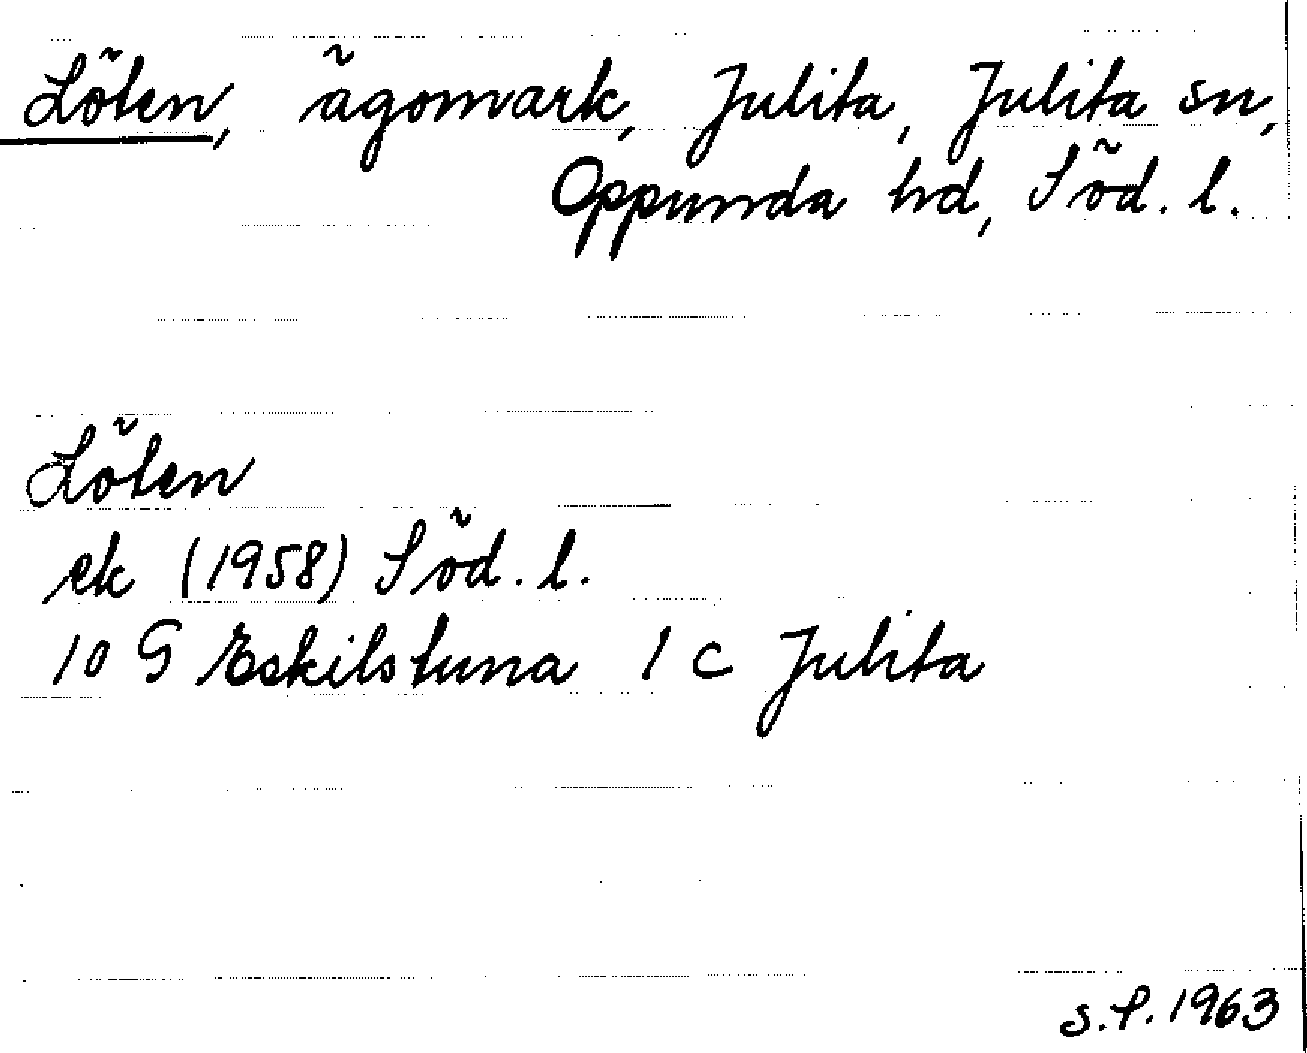 Löten, ägomark, Julita, Julita sn,
Oppunda hd, Söd. l.
Löten
ek (1958) Söd. l.
10 G Eskilstuna 1 c Julita
S.P. 1963